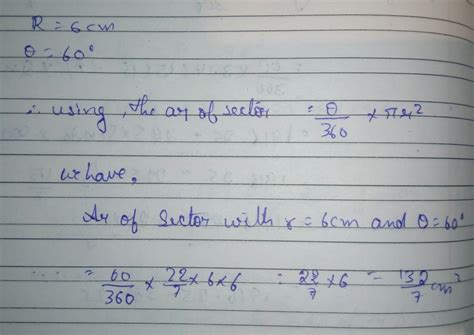 R = 6cm
θ = 60°
∴ using, the ar of sector = θ/360 × πr²
we have,
Ar of Sector with r = 6cm and θ = 60°
= 60/360 × 22/7 × 6 × 6 = 22/7 × 6 = 132/7 cm²